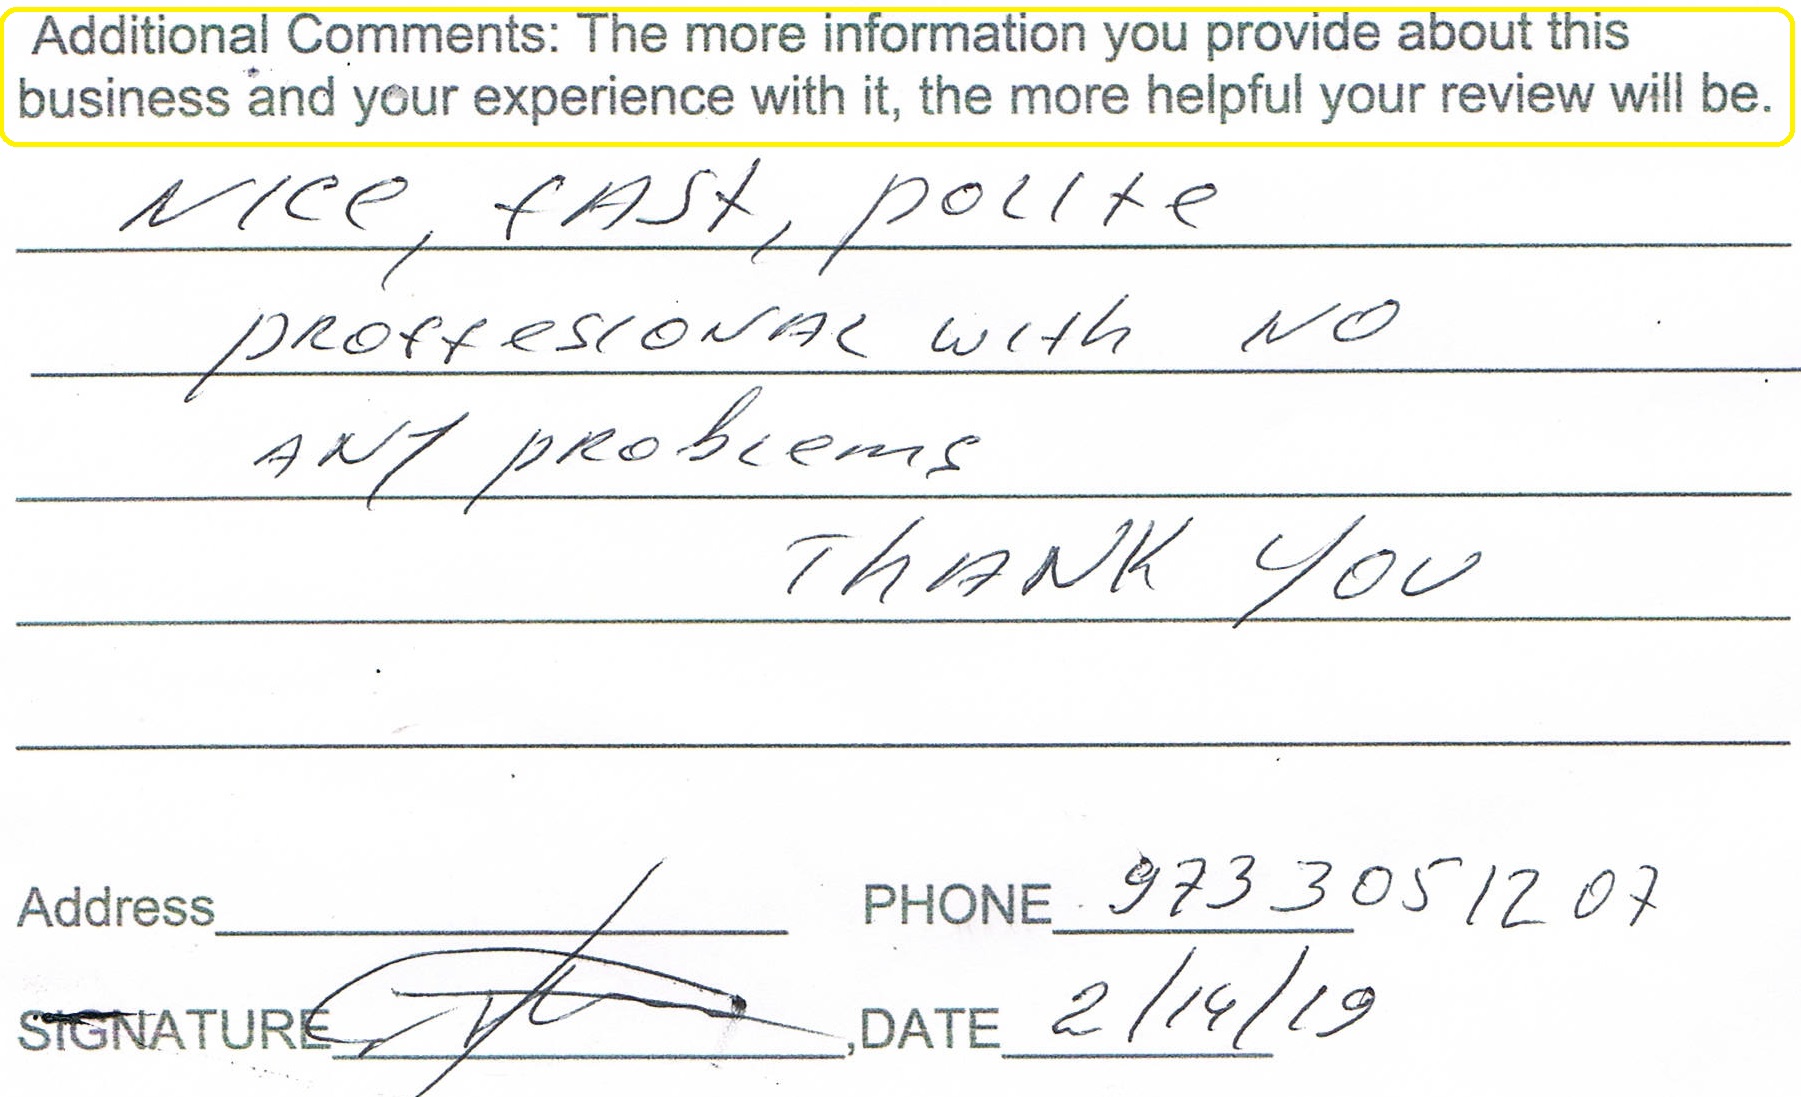 Additional Comments: The more information you provide about this
business and your experience with it, the more helpful your review will be.
NICe, fAst, polite
pRoffesioNAL with NO
ANY pRoblems
ThANK YOU
Address PHONE 9733051207
SIGNATURE ,DATE 2/14/19